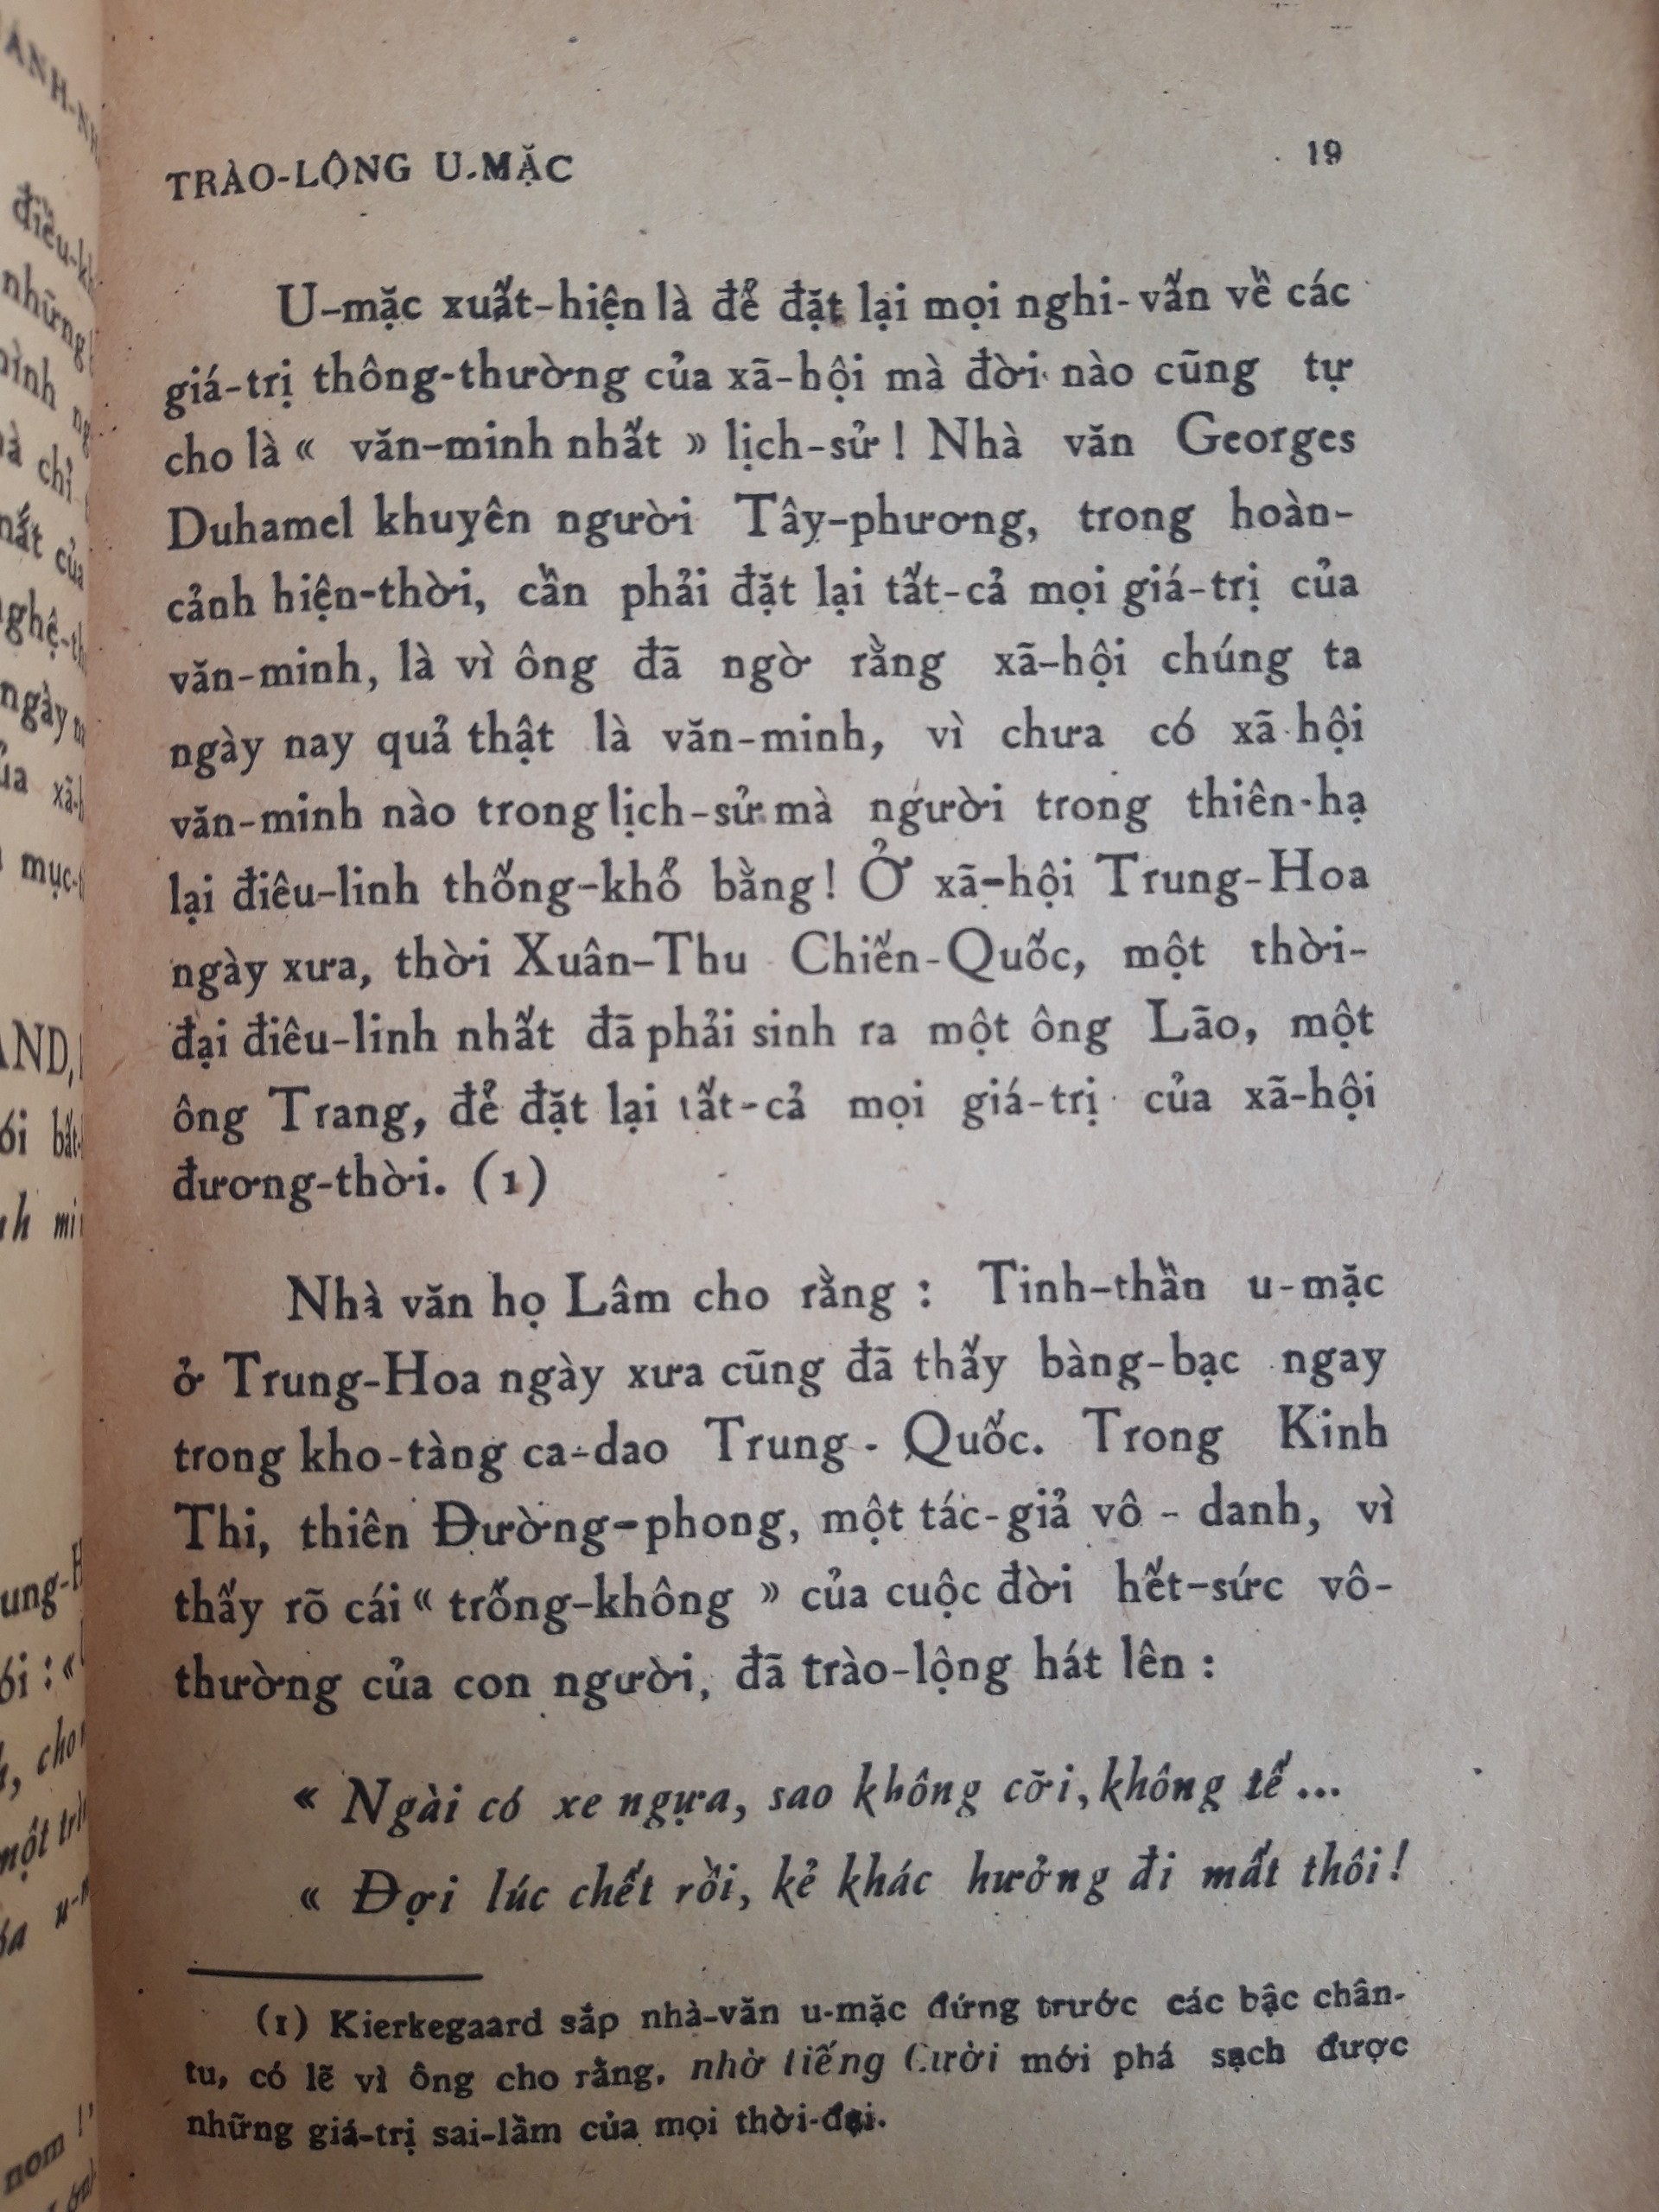 TRÀO-LỘNG U.MẶC 19
U-mặc xuất-hiện là để đặt lại mọi nghi-vấn về các
giá-trị thông-thường của xã-hội mà đời nào cũng tự
cho là « văn-minh nhất » lịch-sử ! Nhà văn Georges
Duhamel khuyên người Tây-phương, trong hoàn-
cảnh hiện-thời, cần phải đặt lại tất-cả mọi giá-trị của
văn-minh, là vì ông đã ngờ rằng xã-hội chúng ta
ngày nay quả thật là văn-minh, vì chưa có xã-hội
văn-minh nào trong lịch-sử mà người trong thiên-hạ
lại điêu-linh thống-khổ bằng ! Ở xã-hội Trung-Hoa
ngày xưa, thời Xuân-Thu Chiến-Quốc, một thời-
đại điêu-linh nhất đã phải sinh ra một ông Lão, một
ông Trang, để đặt lại tất-cả mọi giá-trị của xã-hội
đương-thời. (1)
Nhà văn họ Lâm cho rằng : Tinh-thần u-mặc
ở Trung-Hoa ngày xưa cũng đã thấy bàng-bạc ngay
trong kho-tàng ca-dao Trung - Quốc. Trong Kinh
Thi, thiên Đường-phong, một tác-giả vô - danh, vì
thấy rõ cái « trống-không » của cuộc đời hết-sức vô-
thường của con người, đã trào-lộng hát lên :
« Ngài có xe ngựa, sao không cỡi, không tế ...
« Đợi lúc chết rồi, kẻ khác hưởng đi mất thôi !
(1) Kierkegaard sắp nhà-văn u-mặc đứng trước các bậc chân-
tu, có lẽ vì ông cho rằng, nhờ tiếng Cười mới phá sạch được
những giá-trị sai-lầm của mọi thời-đại.
điều-kh
những
chỉ
của
ngày
xã-h
mục-
AND,
bất-
cho
một
nom